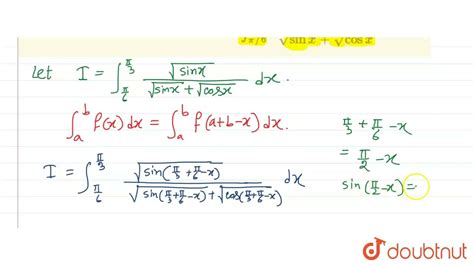 √sin x + √cos x
Let I = ∫_{π/6}^{π/3} √sinx / (√sinx + √cosx) dx.
∫_a^b f(x) dx = ∫_a^b f(a+b-x) dx.
π/3 + π/6 - x
= π/2 - x
I = ∫_{π/6}^{π/3} √sin(π/3 + π/6 - x) / (√sin(π/3 + π/6 - x) + √cos(π/3 + π/6 - x)) dx
sin(π/2 - x) =
doubtnut